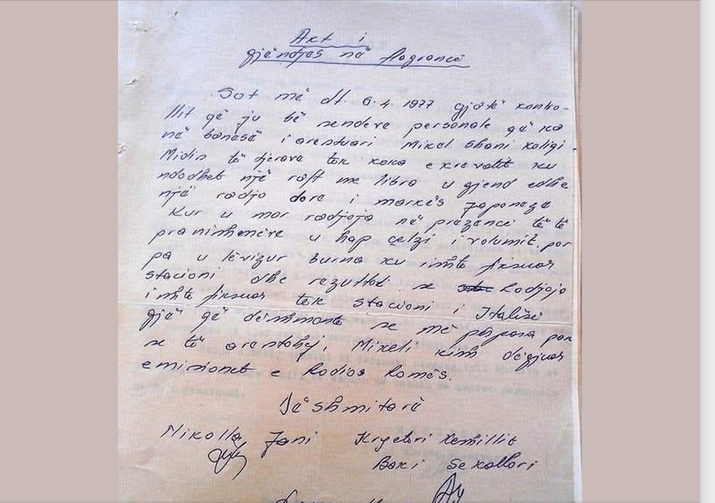 Akt i
gjëndjes në flagrancë
Sot më dt. 6.4.1977 gjatë kontro-
llit që ju bë sendeve personale që ka
në banesë i arestuari Mikel Gjoni Koliqi
Midin të tjerava tek koka e krevatit ku
ndodhet një raft me libra u gjend edhe
një radjo dore i markës Japoneze
Kur u mor radjoja në prezencë të të
pranishmëve u hap çelzi i volumit, por
pa u lëvizur burma ku ishte fiksuar
stacioni dhe rezultoi se Radjoja
ishte fiksuar tek stacioni i Italisë
gjë që dëshmonte se më përpara por
se të arestohej, Mikeli kish dëgjuar
emisionet e Radios Romës.
Dëshmitarë
Nikolla Jani Kryetari Këshillit
Baki